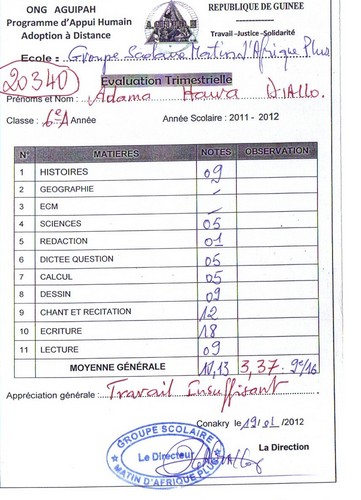 ONG AGUIPAH
REPUBLIQUE DE GUINEE
Programme d'Appui Humain
Adoption à Distance
Travail -Justice -Solidarité
Ecole : Groupe Scolaire Matin d'Afrique Plus
20340
Evaluation Trimestrielle
Prénoms et Nom : Adama Hawa DIALLO.
Classe : 6e A Année
Année Scolaire : 2011 - 2012
N° MATIERES NOTES OBSERVATION
1 HISTOIRES 09
2 GEOGRAPHIE
3 ECM
4 SCIENCES 05
5 REDACTION 01
6 DICTEE QUESTION 05
7 CALCUL 05
8 DESSIN 09
9 CHANT ET RECITATION 12
10 ECRITURE 18
11 LECTURE 09
MOYENNE GÉNÉRALE 10,13 3,37. 9e/16
Appréciation générale : Travail Insuffisant
Conakry le 19/01/2012
La Direction
GROUPE SCOLAIRE
Le Directeur
MATIN D'AFRIQUE PLUS